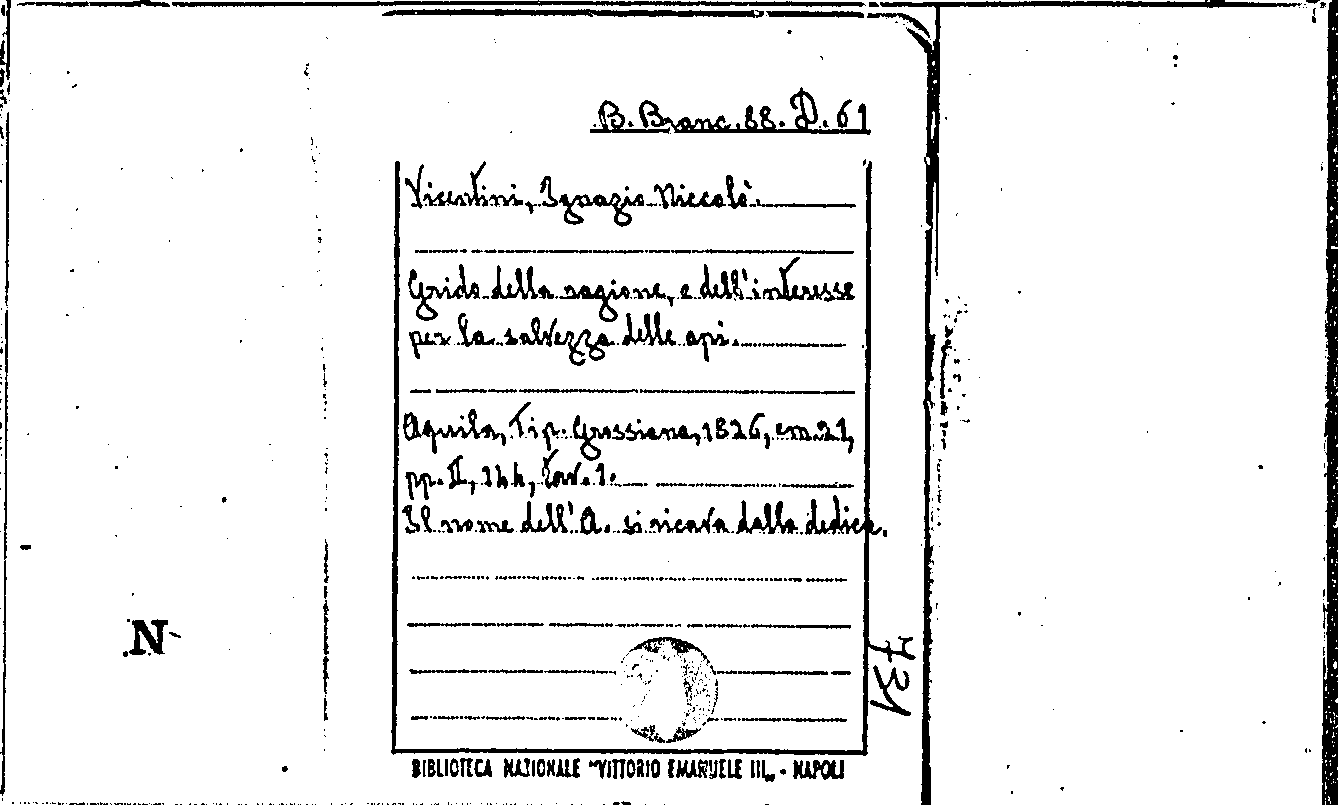 B. Branc. 88. D. 61
Vicentini, Ignazio Niccolò.
Grido della ragione, e dell'interesse
per la salvezza delle api.
Aquila, Tip. Grossiana, 1826, cm. 21,
pp. II, 144, tav. 1.
Il nome dell'A. si ricava dalla dedica.
N
731
BIBLIOTECA NAZIONALE "VITTORIO EMANUELE III" - NAPOLI